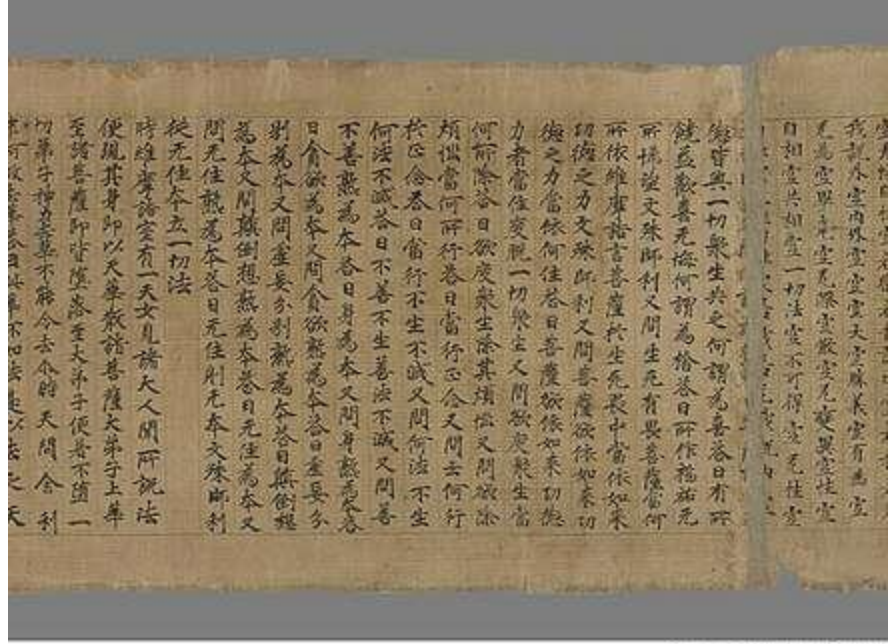 我說外空內外空空空大空勝義空有為空
无為空畢竟空无際空散空无變異空性空
自相空共相空一切法空不可得空无性空
德皆與一切眾生共之何謂為喜答曰有所
饒益歡喜无悔何謂為捨答曰所作福祐无
所悕望文殊師利又問生死有畏菩薩當何
所依維摩詰言菩薩於生死畏中當依如來
功德之力文殊師利又問菩薩欲依如來功
德之力當依何住答曰菩薩欲依如來功德
力者當住度脫一切眾生又問欲度眾生當
何所除答曰欲度眾生除其煩惱又問欲除
煩惱當何所行答曰當行正念又問云何行
於正念答曰當行不生不滅又問何法不生
何法不滅答曰不善不生善法不滅又問善
不善熟為本答曰身為本又問身熟為本答
曰貪欲為本又問貪欲熟為本答曰虛妄分
別為本又問虛妄分別熟為本答曰顛倒想
為本又問顛倒想熟為本答曰无住為本又
問无住熟為本答曰无住則无本文殊師利
從无住本立一切法
時維摩詰室有一天女見諸大人聞所說法
便現其身即以天華散諸菩薩大弟子上華
至諸菩薩即皆墮落至大弟子便著不墮一
切弟子神力去華不能令去尒時天問舍利